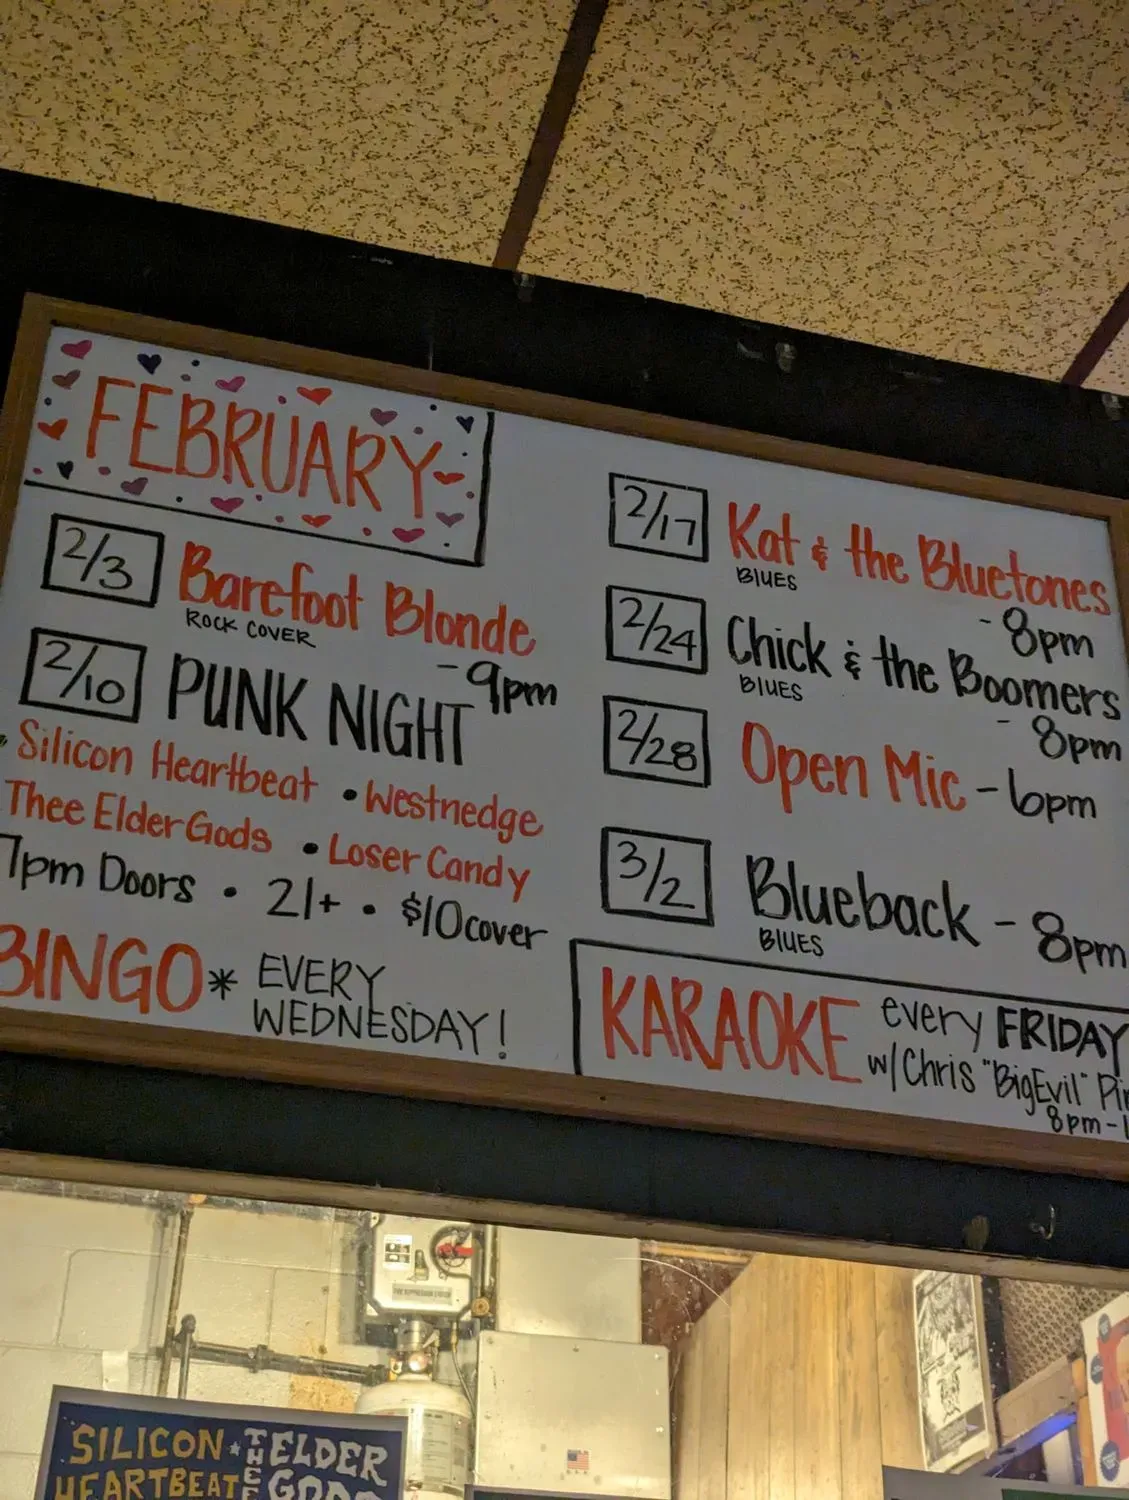 FEBRUARY
2/3 Barefoot Blonde
ROCK COVER
-9pm
2/10 PUNK NIGHT
• Silicon Heartbeat • Westnedge
Thee Elder Gods • Loser Candy
7pm Doors • 21+ • $10 cover
BINGO * EVERY
WEDNESDAY!
2/17 Kat & the Bluetones
BLUES
-8pm
2/24 Chick & the Boomers
BLUES
-8pm
2/28 Open Mic - 6pm
3/2 Blueback - 8pm
BLUES
KARAOKE every FRIDAY
w/ Chris "Big Evil"
8pm-1
FIRE SUPPRESSION SYSTEM
SILICON * THEE ELDER
HEARTBEAT GODS